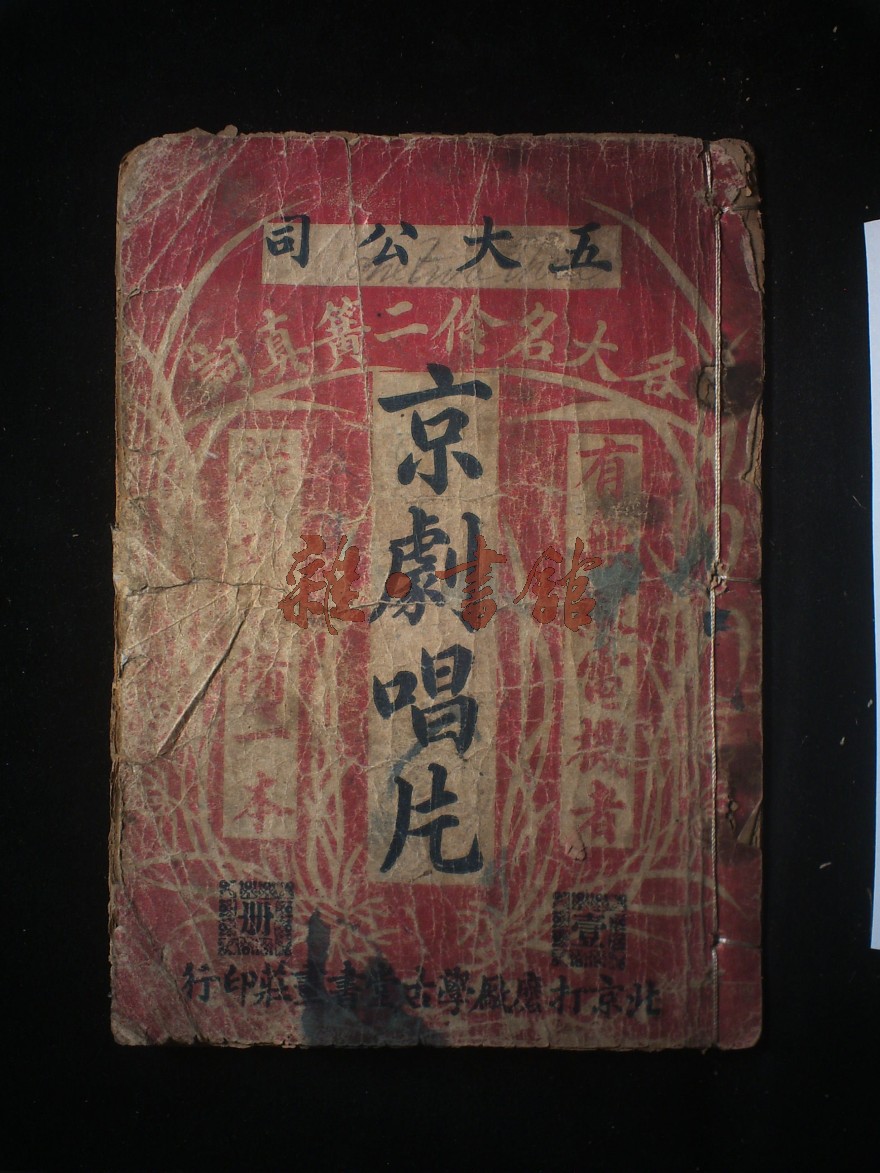 五大公司
大名伶二簧真詞
京劇唱片
有
當機者
一本
壹
冊
北京打磨廠學古堂書畫莊印行
雜·書館